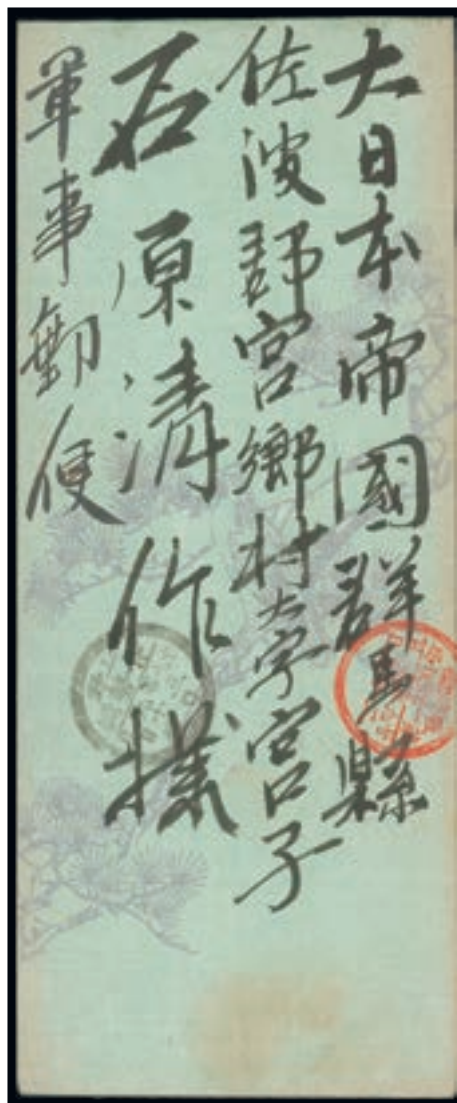 大日本帝國群馬縣
佐波郡宮郷村大字宮子
石原清作様
軍事郵便